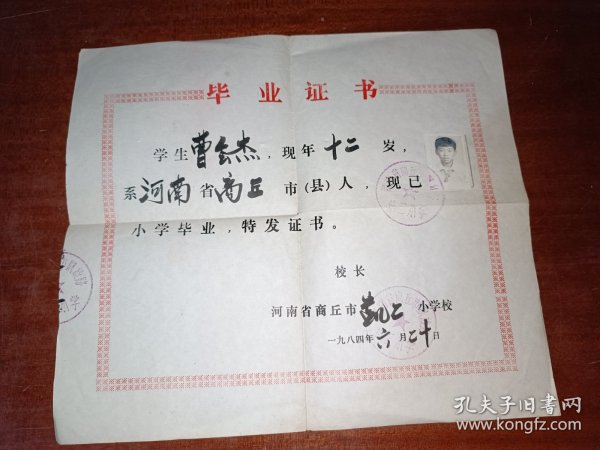 毕业证书
学生曹会杰，现年十二岁，
系河南省商丘市(县)人，现已
小学毕业，特发证书。
校长
河南省商丘市凯二小学校
一九八四年六月二十日
孔夫子旧书网
www.kongfz.com